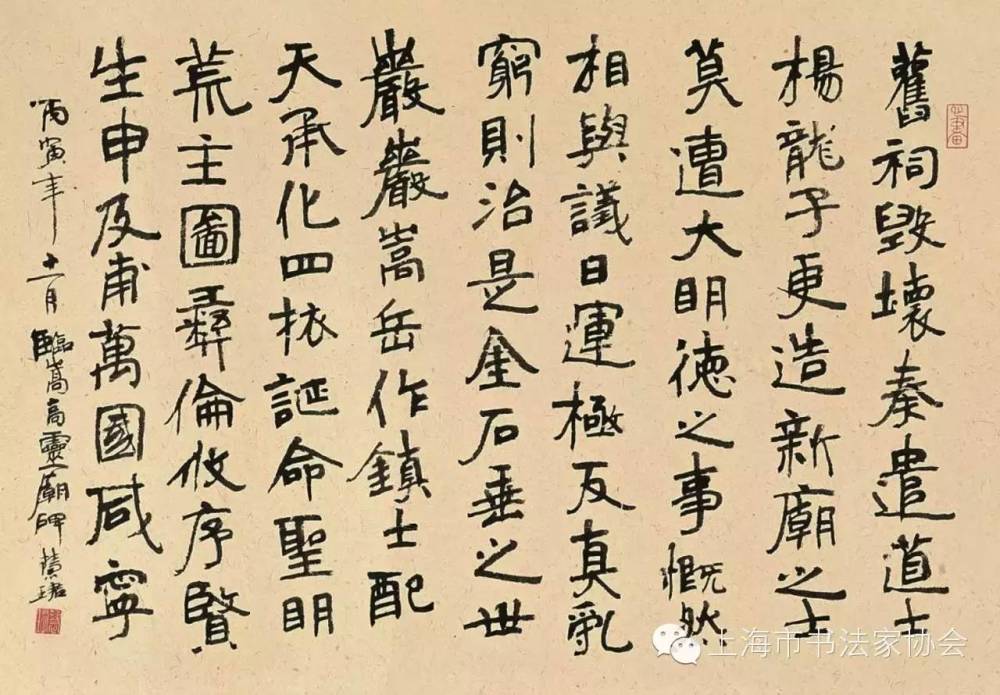 舊祠毀壞奏遣道士
楊龍子更造新廟之士
莫遭大明徳之事慨然
相與議曰運極反真乳
窮則治是金石垂之世
巖巖嵩岳作鎮土配
天承化四祑誕命聖明
荒主圖彝倫攸序賢
生申及甫萬國咸寧
丙寅年十一月臨嵩高靈廟碑慧珺
上海市书法家协会